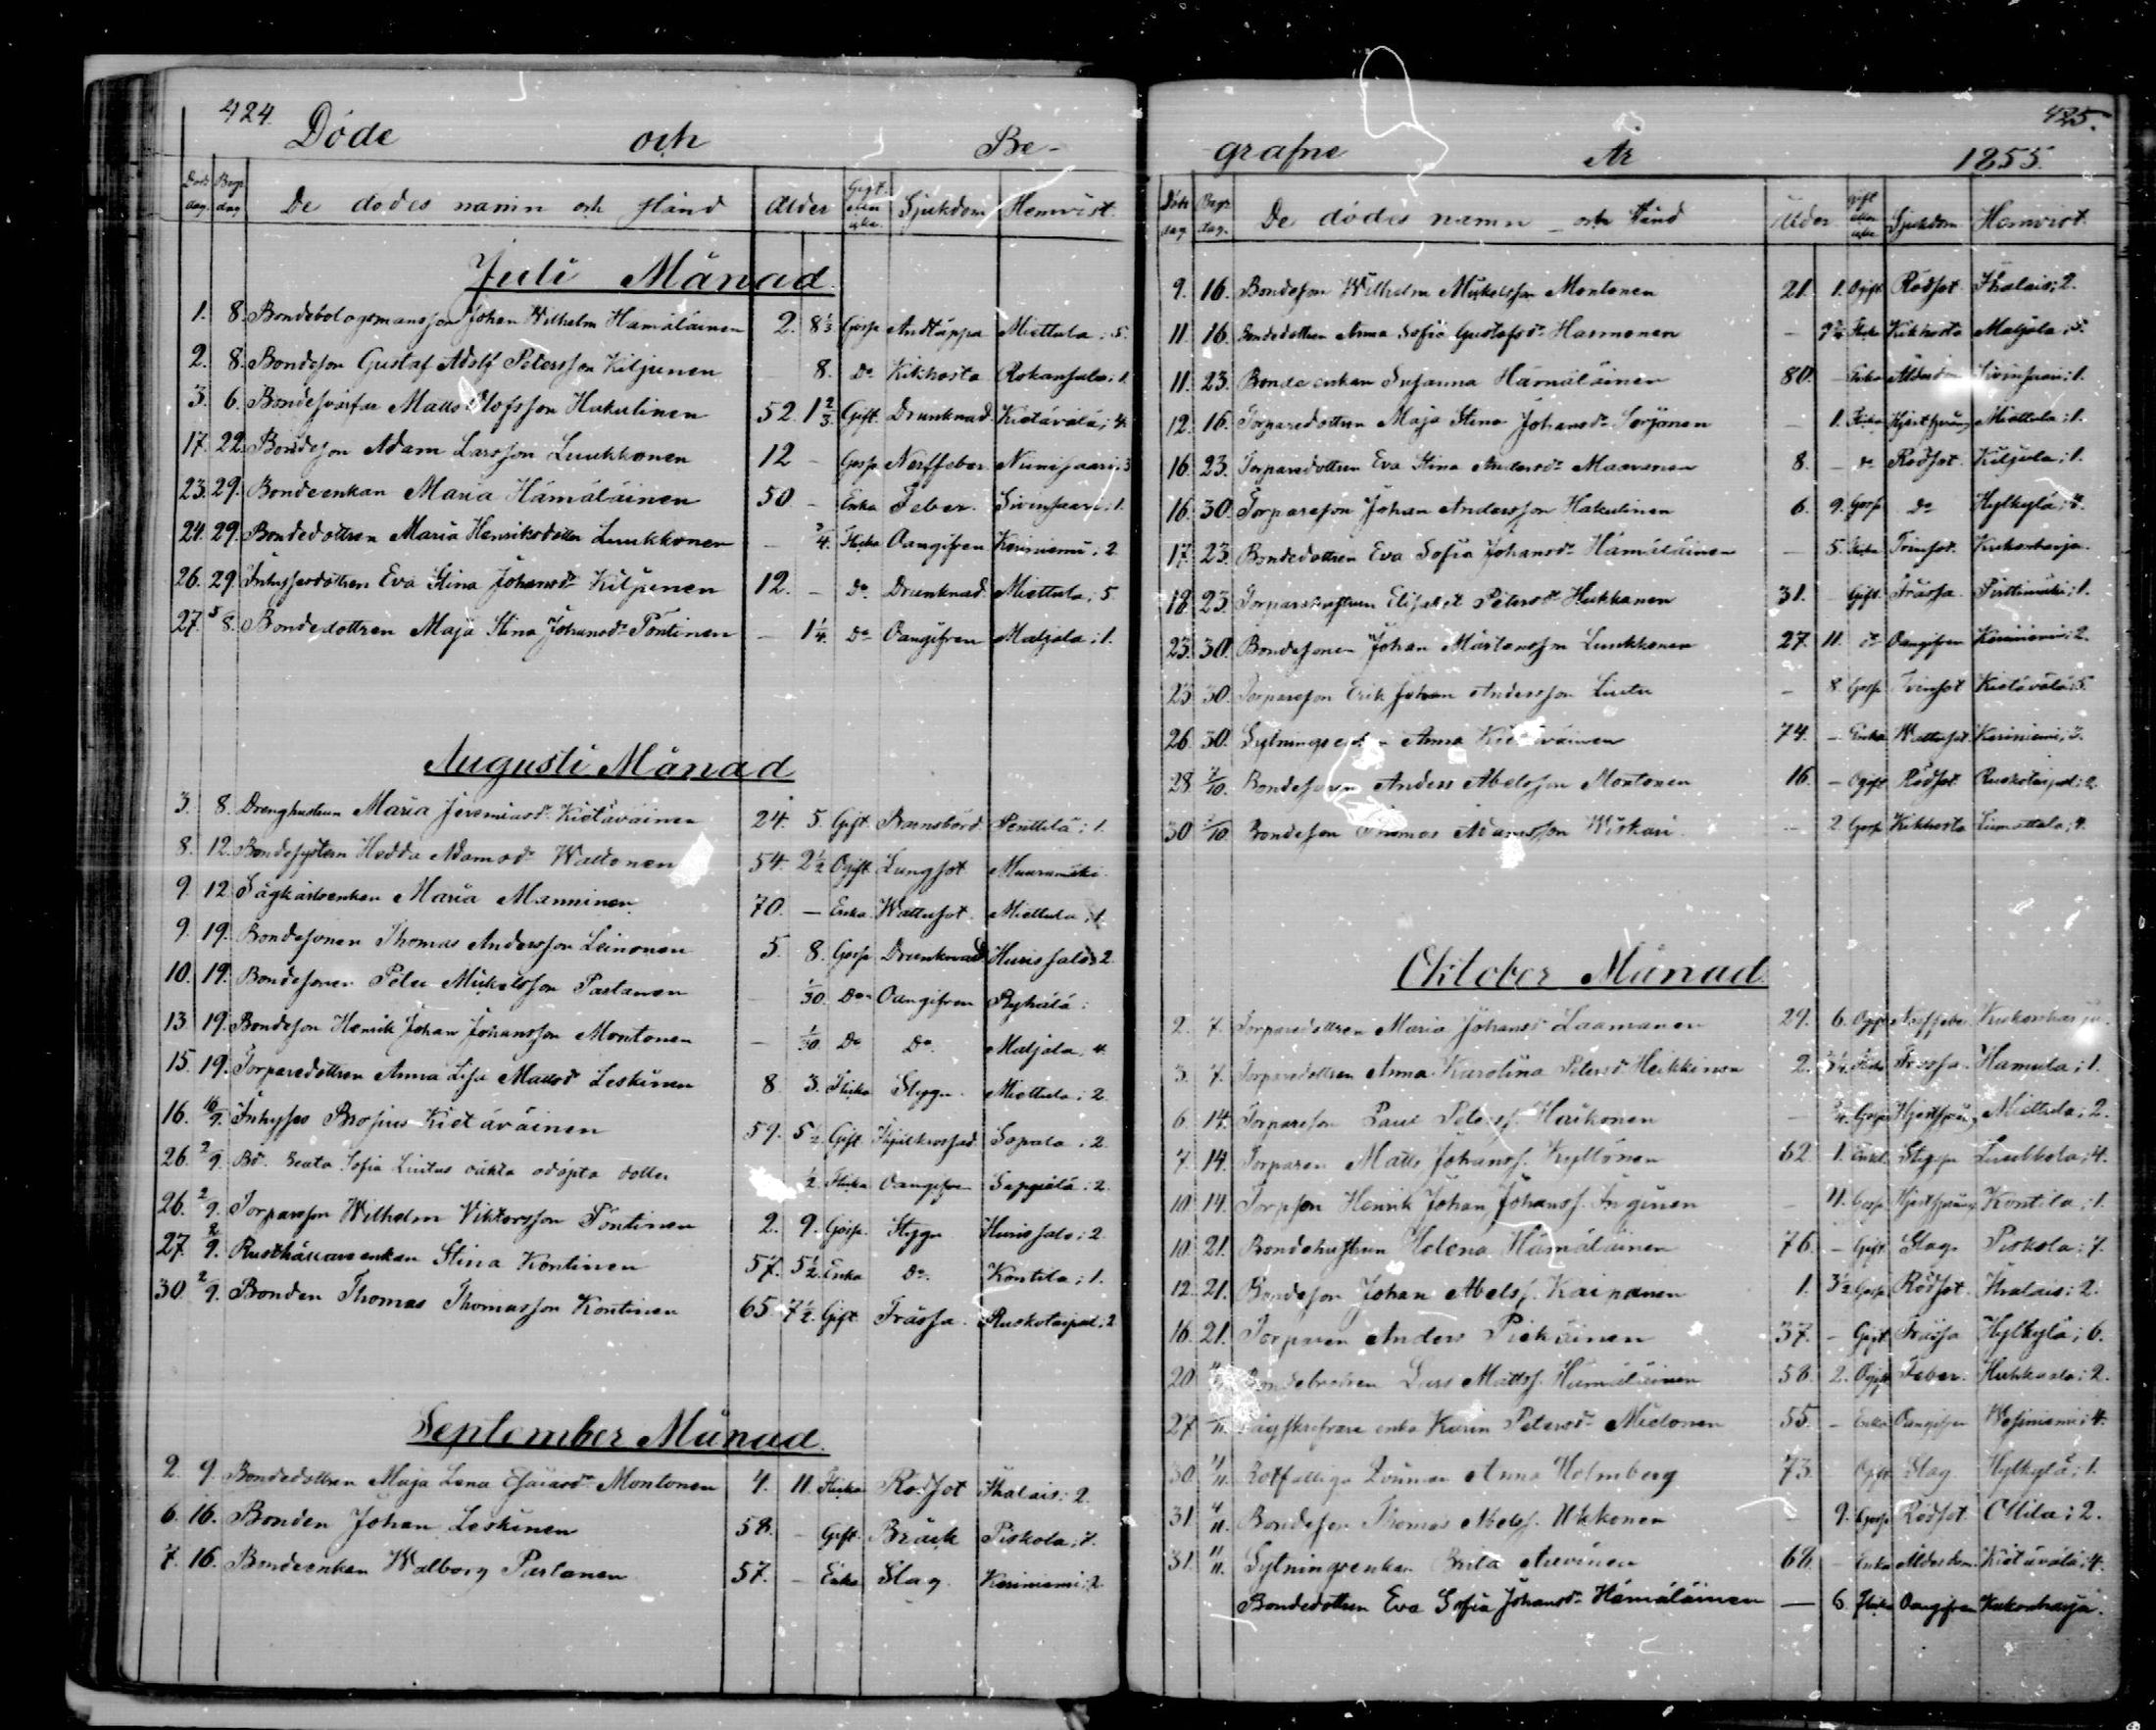 424.
Döde och Be-
Död dag. Begr. dag De dödes namn och stånd Ålder Gift eller icke. Sjukdom Hemvist.
Juli Månad.
1. 8. Bondebolagsmansson Johan Wilhelm Hämäläinen 2. 8 1/3 Gosse Andtäppa Miettula; 5.
2. 8. Bondeson Gustaf Adolf Petersson Kiljunen 8. Do Kikhosta Rokansalo; 1.
3. 6. Bondesvärfar Matts Olofsson Hakulinen 52. 1 2/3 Gift. Drunknad. Kietävälä; 4.
17. 22. Bondeson Adam Larsson Luukkonen 12 - Gosse Nerffeber. Niinisaari; 3
23. 29. Bondeenkan Maria Hämäläinen 50 - Enka Feber. Sivinsaari; 1.
24. 29. Bondedottren Maria Henriksdotter Luukkonen - 3/4. Flicka Oangifven Keriniemi; 2
26. 29. Inhysesdottren Eva Stina Johansdr Kiljunen 12. - Do Drunknad Miettula; 5
27. 5/8. Bondedottren Maja Stina Johansdr Pöntinen - 1 1/4. Do Oangifven Maljala; 1.
Augusti Månad
3. 8. Drenghustrun Maria Jeremiasdr Kietäväinen 24. 5. Gift. Barnsbörd. Penttilä; 1.
8. 12. Bondesystern Hedda Adamsdr Waltonen 54. 2 1/2 Ogift. Lungsot. Muuramäki.
9. 12. Sågkarlsenkan Maria Manninen 70. - Enka. Wattusot. Miettula; 1.
9. 19. Bondesonen Thomas Andersson Leinonen 5. 8. Gosse Drunknad Hurissalo; 2.
10. 19. Bondesonen Peter Mickelsson Partanen - 1/30. Do Oangifven Ryhälä:
13. 19. Bondeson Henrik Johan Johansson Montonen - 1/30. Do Do. Maljala; 4.
15. 19. Torparedottren Anna Lisa Mattsdr Leskinen 8 3. Flicka Stygn. Miettula; 2
16. 16/9. Inhyses Brosius Kietäväinen 59. 5 1/2 Gift. Ihjälkrossad. Sopala; 2.
26. 2/9. Bd. Beata Sofia Liutus oäkta odöpta dotter 1/2. Flicka Oangifven Sappälä; 2.
26. 2/9. Torpareson Wilhelm Viktorsson Pöntinen 2. 9. Gosse. Stygn Hurissalo; 2
27. 2/9. Rusthållareenkan Stina Kontinen 57. 5 1/2. Enka Do. Kontila; 1.
30. 2/9. Bonden Thomas Thomasson Kontinen 65 7 1/2. Gift Frässa. Ruokotaipal; 2
September Månad.
2. 9. Bondedottren Maja Lena Esaiasdr Montonen 4. 11. Flicka Rödsot Ihalais: 2.
6. 16. Bonden Johan Leskinen 58. - Gift. Bråck Piskola; 7.
7. 16. Bondeenkan Walborg Partanen 57. - Enka Slag. Keriniemi; 2
425.
grafne År 1855.
Död dag. Begr. dag. De dödes namn och stånd Ålder Gift eller icke Sjukdom Hemvist.
9. 16. Bondeson Wilhelm Mickelsson Montonen 21. 1. Ogift. Rödsot. Ihalais; 2.
11. 16. Bondedottren Anna Sofia Gustafsdr Harmonen - Flicka Kikhosta Maljala; 5.
11. 23. Bondeenkan Susanna Hämäläinen 80. - Enka Ålderdom Sivinsaari; 1.
12. 16. Torparedottren Maja Stina Johansdr Sorjonen - 1. Flicka Hjertsprång Miettula; 1.
16. 23. Torparedottren Eva Stina Andersdr Maavanen 8. - Do Rödsot. Kiljula; 1.
16. 30. Torpareson Johan Andersson Hakulinen 6. 9. Gosse Do Hylkylä;
17. 23. Bondedottren Eva Sofia Johansdr Hämäläinen - 5. Flicka Tvinsot. Kukonharja.
18. 23. Torparehustrun Elisabet Petersdr Hukkanen 31. Gift. Frässa. Pirttimäki; 1.
23. 30. Bondesonen Johan Mårtensson Luukkonen 27. 11. Do Oangifven Keriniemi; 2.
23 30. Torpareson Erik Johan Andersson Liutu - 8. Gosse Tvinsot Kietävälä; 5.
26. 30. Sytningsenkan Anna Kietäväinen 74. - Enka Wattusot. Keriniemi; 2.
28 2/10. Bondesonen Anders Abelsson Montonen 16. - Ogift Rödsot. Ruokotaipal; 2.
30 2/10. Bondeson Thomas Adamsson Wiskari - 2. Gosse Kikhosta Liimattala; 4.
Oktober Månad
2. 7. Torparedottren Maria Johansdr Laamanen 29. 6. Ogift Nerffeber Kukonharja.
3. 7. Torparedottren Anna Karolina Petersdr Heikkinen 2. 3 1/2. Flicka Frässa. Hamula; 1.
6. 14. Torpareson Paul Peterss. Haikonen - Gosse Hjertsprång Miettula; 2.
7. 14. Torparen Matts Johanss. Kyllönen 62. 1. Enkl. Stygn Luukkola; 4.
10. 14. Torpson Henrik Johan Johanss. Inginen - 11. Gosse Hjertsprång Kontila; 1.
10. 21. Bondehustrun Helena Hämäläinen 76. - Gift Slag. Piskola; 7.
12. 21. Bondeson Johan Abelss. Kaipanen 1. 3 1/2 Gosse Rödsot. Ihalais: 2.
16. 21. Torparen Anders Pickäinen 37. - Gift Frässa Hylkylä; 6.
20. Bondebrodren Lars Mattss. Hämäläinen 58. 2. Ogift Feber. Huhkaala: 2.
27 enka Karin Petersdr Mielonen 55. - Enka Oangifven Wesiniemi; 4.
30. 4/11. Rotfattiga Anna Holmberg 73. Ogift Slag. Hylkylä; 1.
31. 4/11. Bondeson Thomas Abelss. Ukkonen - 9. Gosse Rödsot. Ollila; 2.
31. 11/11. Sytningsenkan Brita Auvinen 68. - Enka Ålderdom. Kietävälä; 4.
Bondedottren Eva Sofia Johansdr Hämäläinen - 6. Flicka Oangifven Kukonharja.